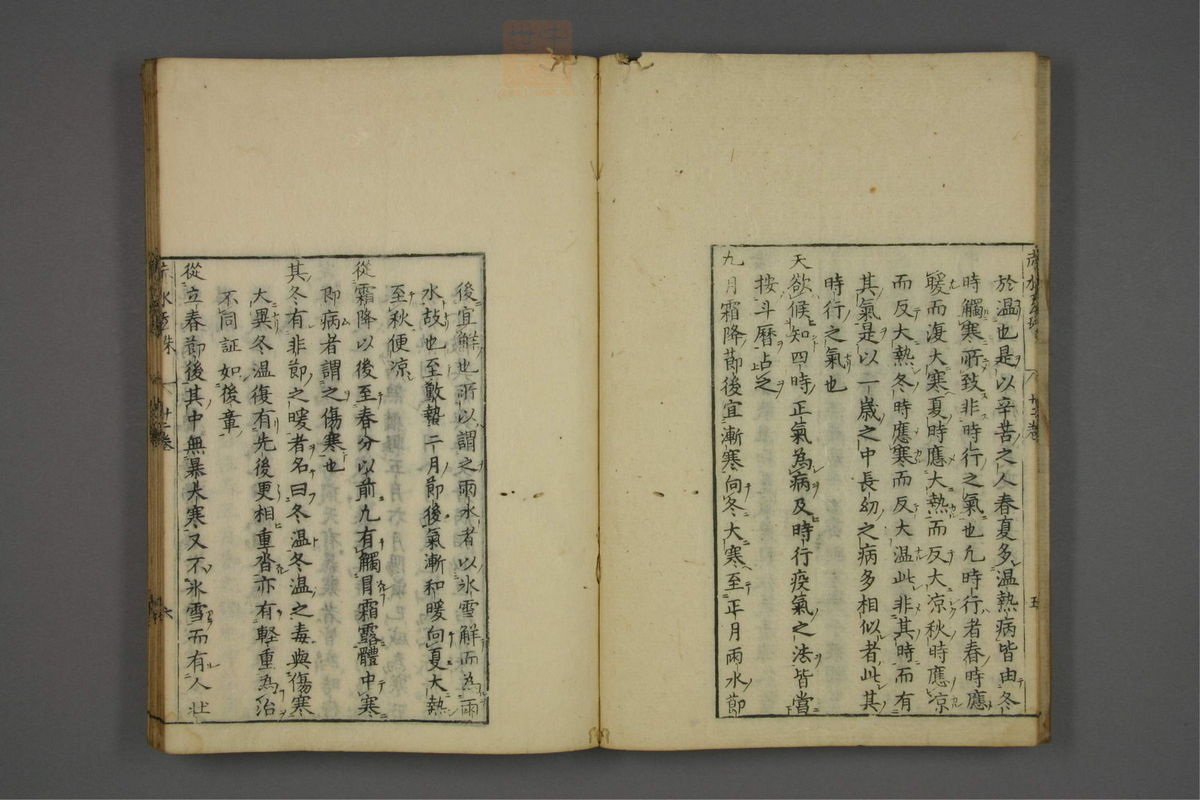 於温也是以辛苦之人春夏多温熱病皆由冬
時觸寒所致非時行之氣也凡時行者春時應
暖而復大寒夏時應大熱而反大凉秋時應凉
而反大熱冬時應寒而反大温此非其時而有
其氣是以一歳之中長幼之病多相似者此其
時行之氣也
天欲候知四時正氣為病及時行疫氣之法皆當
按斗暦占之
九月霜降節後宜漸寒向冬大寒至正月雨水節
後宜解也所以謂之雨水者以氷雪解而為雨
水故也至驚蟄二月節後氣漸和暖向夏大熱
至秋便凉
從霜降以後至春分以前凡有觸冒霜露體中寒
即病者謂之傷寒也
其冬有非節之暖者名曰冬温冬温之毒與傷寒
大異冬温復有先後更相重沓亦有軽重為治
不同証如後章
從立春節後其中無暴大寒又不氷雪而有人壮
六